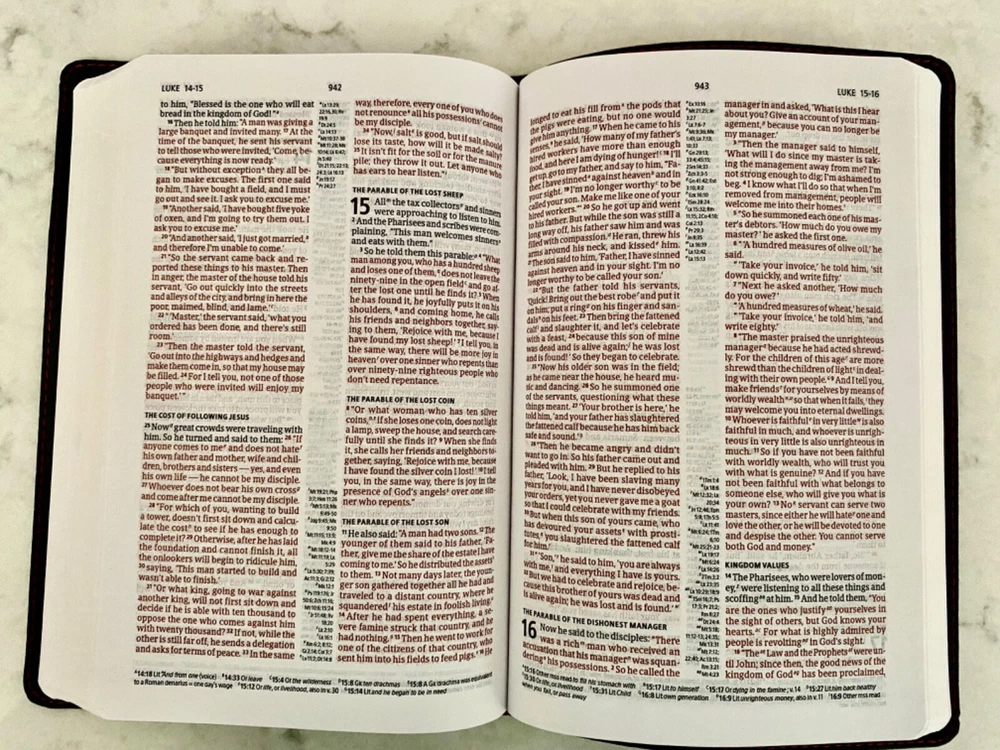 LUKE 14-15
942
to him, "Blessed is the one who will eat
bread in the kingdom of God!"
16 Then he told him: "A man was giving a
large banquet and invited many. 17 At the
time of the banquet, he sent his servant
to tell those who were invited, 'Come, be-
cause everything is now ready.'
18 "But without exception they all be-
gan to make excuses. The first one said
to him, 'I have bought a field, and I must
go out and see it. I ask you to excuse me.'
19 "Another said, 'I have bought five yoke
of oxen, and I'm going to try them out. I
ask you to excuse me.'
20 "And another said, 'I just got married,
and therefore I'm unable to come.'
21 "So the servant came back and re-
ported these things to his master. Then
in anger, the master of the house told his
servant, 'Go out quickly into the streets
and alleys of the city, and bring in here the
poor, maimed, blind, and lame.'
22 "'Master,' the servant said, 'what you
ordered has been done, and there's still
room.'
23 "Then the master told the servant,
'Go out into the highways and hedges and
make them come in, so that my house may
be filled. 24 For I tell you, not one of those
people who were invited will enjoy my
banquet.'"
THE COST OF FOLLOWING JESUS
25 Now great crowds were traveling with
him. So he turned and said to them: 26 "If
anyone comes to me and does not hate
his own father and mother, wife and chil-
dren, brothers and sisters — yes, and even
his own life — he cannot be my disciple.
27 Whoever does not bear his own cross
and come after me cannot be my disciple.
28 "For which of you, wanting to build
a tower, doesn't first sit down and calcu-
late the cost to see if he has enough to
complete it? 29 Otherwise, after he has laid
the foundation and cannot finish it, all
the onlookers will begin to ridicule him,
30 saying, 'This man started to build and
wasn't able to finish.'
31 "Or what king, going to war against
another king, will not first sit down and
decide if he is able with ten thousand to
oppose the one who comes against him
with twenty thousand? 32 If not, while the
other is still far off, he sends a delegation
and asks for terms of peace. 33 In the same
way, therefore, every one of you who does
not renounce all his possessions cannot
be my disciple.
34 "Now, salt is good, but if salt should
lose its taste, how will it be made salty?
35 It isn't fit for the soil or for the manure
pile; they throw it out. Let anyone who
has ears to hear listen."
THE PARABLE OF THE LOST SHEEP
15 All the tax collectors and sinners
were approaching to listen to him.
2 And the Pharisees and scribes were com-
plaining, "This man welcomes sinners
and eats with them."
3 So he told them this parable: 4 "What
man among you, who has a hundred sheep
and loses one of them, does not leave the
ninety-nine in the open field and go af-
ter the lost one until he finds it? 5 When
he has found it, he joyfully puts it on his
shoulders, 6 and coming home, he calls
his friends and neighbors together, say-
ing to them, 'Rejoice with me, because I
have found my lost sheep!' 7 I tell you, in
the same way, there will be more joy in
heaven over one sinner who repents than
over ninety-nine righteous people who
don't need repentance.
THE PARABLE OF THE LOST COIN
8 "Or what woman who has ten silver
coins, if she loses one coin, does not light
a lamp, sweep the house, and search care-
fully until she finds it? 9 When she finds
it, she calls her friends and neighbors to-
gether, saying, 'Rejoice with me, because
I have found the silver coin I lost!' 10 I tell
you, in the same way, there is joy in the
presence of God's angels over one sin-
ner who repents."
THE PARABLE OF THE LOST SON
11 He also said: "A man had two sons. 12 The
younger of them said to his father, 'Fa-
ther, give me the share of the estate I have
coming to me.' So he distributed the assets
to them. 13 Not many days later, the youn-
ger son gathered together all he had and
traveled to a distant country, where he
squandered his estate in foolish living.
14 After he had spent everything, a se-
vere famine struck that country, and he
had nothing. 15 Then he went to work for
one of the citizens of that country, who
sent him into his fields to feed pigs. 16 He
14:18 Lit And from one (voice) 14:33 Or leave 15:4 Or the wilderness 15:8 Gk ten drachmas 15:8 A Gk drachma was equivalent
to a Roman denarius = one day's wage 15:12 Or life, or livelihood, also in v.30 15:14 Lit and he began to be in need
943
LUKE 15-16
longed to eat his fill from the pods that
the pigs were eating, but no one would
give him anything. 17 When he came to his
senses, he said, 'How many of my father's
hired workers have more than enough
food, and here I am dying of hunger! 18 I'll
get up, go to my father, and say to him, "Fa-
ther, I have sinned against heaven and in
your sight. 19 I'm no longer worthy to be
called your son. Make me like one of your
hired workers."' 20 So he got up and went
to his father. But while the son was still a
long way off, his father saw him and was
filled with compassion. He ran, threw his
arms around his neck, and kissed him.
21 The son said to him, 'Father, I have sinned
against heaven and in your sight. I'm no
longer worthy to be called your son.'
22 "But the father told his servants,
'Quick! Bring out the best robe and put it
on him; put a ring on his finger and san-
dals on his feet. 23 Then bring the fattened
calf and slaughter it, and let's celebrate
with a feast, 24 because this son of mine
was dead and is alive again; he was lost
and is found!' So they began to celebrate.
25 "Now his older son was in the field;
as he came near the house, he heard mu-
sic and dancing. 26 So he summoned one
of the servants, questioning what these
things meant. 27 'Your brother is here,' he
told him, 'and your father has slaughtered
the fattened calf because he has him back
safe and sound.'
28 "Then he became angry and didn't
want to go in. So his father came out and
pleaded with him. 29 But he replied to his
father, 'Look, I have been slaving many
years for you, and I have never disobeyed
your orders, yet you never gave me a goat
so that I could celebrate with my friends.
30 But when this son of yours came, who
has devoured your assets with prosti-
tutes, you slaughtered the fattened calf
for him.'
31 "'Son,' he said to him, 'you are always
with me, and everything I have is yours.
32 But we had to celebrate and rejoice, be-
cause this brother of yours was dead and
is alive again; he was lost and is found.'"
THE PARABLE OF THE DISHONEST MANAGER
16 Now he said to the disciples: "There
was a rich man who received an
accusation that his manager was squan-
dering his possessions. 2 So he called the
manager in and asked, 'What is this I hear
about you? Give an account of your man-
agement, because you can no longer be
my manager.'
3 "Then the manager said to himself,
'What will I do since my master is tak-
ing the management away from me? I'm
not strong enough to dig; I'm ashamed to
beg. 4 I know what I'll do so that when I'm
removed from management, people will
welcome me into their homes.'
5 "So he summoned each one of his mas-
ter's debtors. 'How much do you owe my
master?' he asked the first one.
6 "'A hundred measures of olive oil,' he
said.
"'Take your invoice,' he told him, 'sit
down quickly, and write fifty.'
7 "Next he asked another, 'How much
do you owe?'
"'A hundred measures of wheat,' he said.
"'Take your invoice,' he told him, 'and
write eighty.'
8 "The master praised the unrighteous
manager because he had acted shrewd-
ly. For the children of this age are more
shrewd than the children of light in deal-
ing with their own people. 9 And I tell you,
make friends for yourselves by means of
worldly wealth so that when it fails, they
may welcome you into eternal dwellings.
10 Whoever is faithful in very little is also
faithful in much, and whoever is unrigh-
teous in very little is also unrighteous in
much. 11 So if you have not been faithful
with worldly wealth, who will trust you
with what is genuine? 12 And if you have
not been faithful with what belongs to
someone else, who will give you what is
your own? 13 No servant can serve two
masters, since either he will hate one and
love the other, or he will be devoted to one
and despise the other. You cannot serve
both God and money."
KINGDOM VALUES
14 The Pharisees, who were lovers of mon-
ey, were listening to all these things and
scoffing at him. 15 And he told them, "You
are the ones who justify yourselves in
the sight of others, but God knows your
hearts. For what is highly admired by
people is revolting in God's sight.
16 "The Law and the Prophets were un-
til John; since then, the good news of the
kingdom of God has been proclaimed,
15:16 Other mss read to fill his stomach with 15:17 Lit to himself 15:17 Or dying in the famine; v.14 15:27 Lit him back healthy
15:30 Or life, or livelihood 15:31 Lit Child 16:8 Lit own generation 16:9 Lit unrighteous money, also in v. 11 16:9 Other mss read
when you fail, or pass away